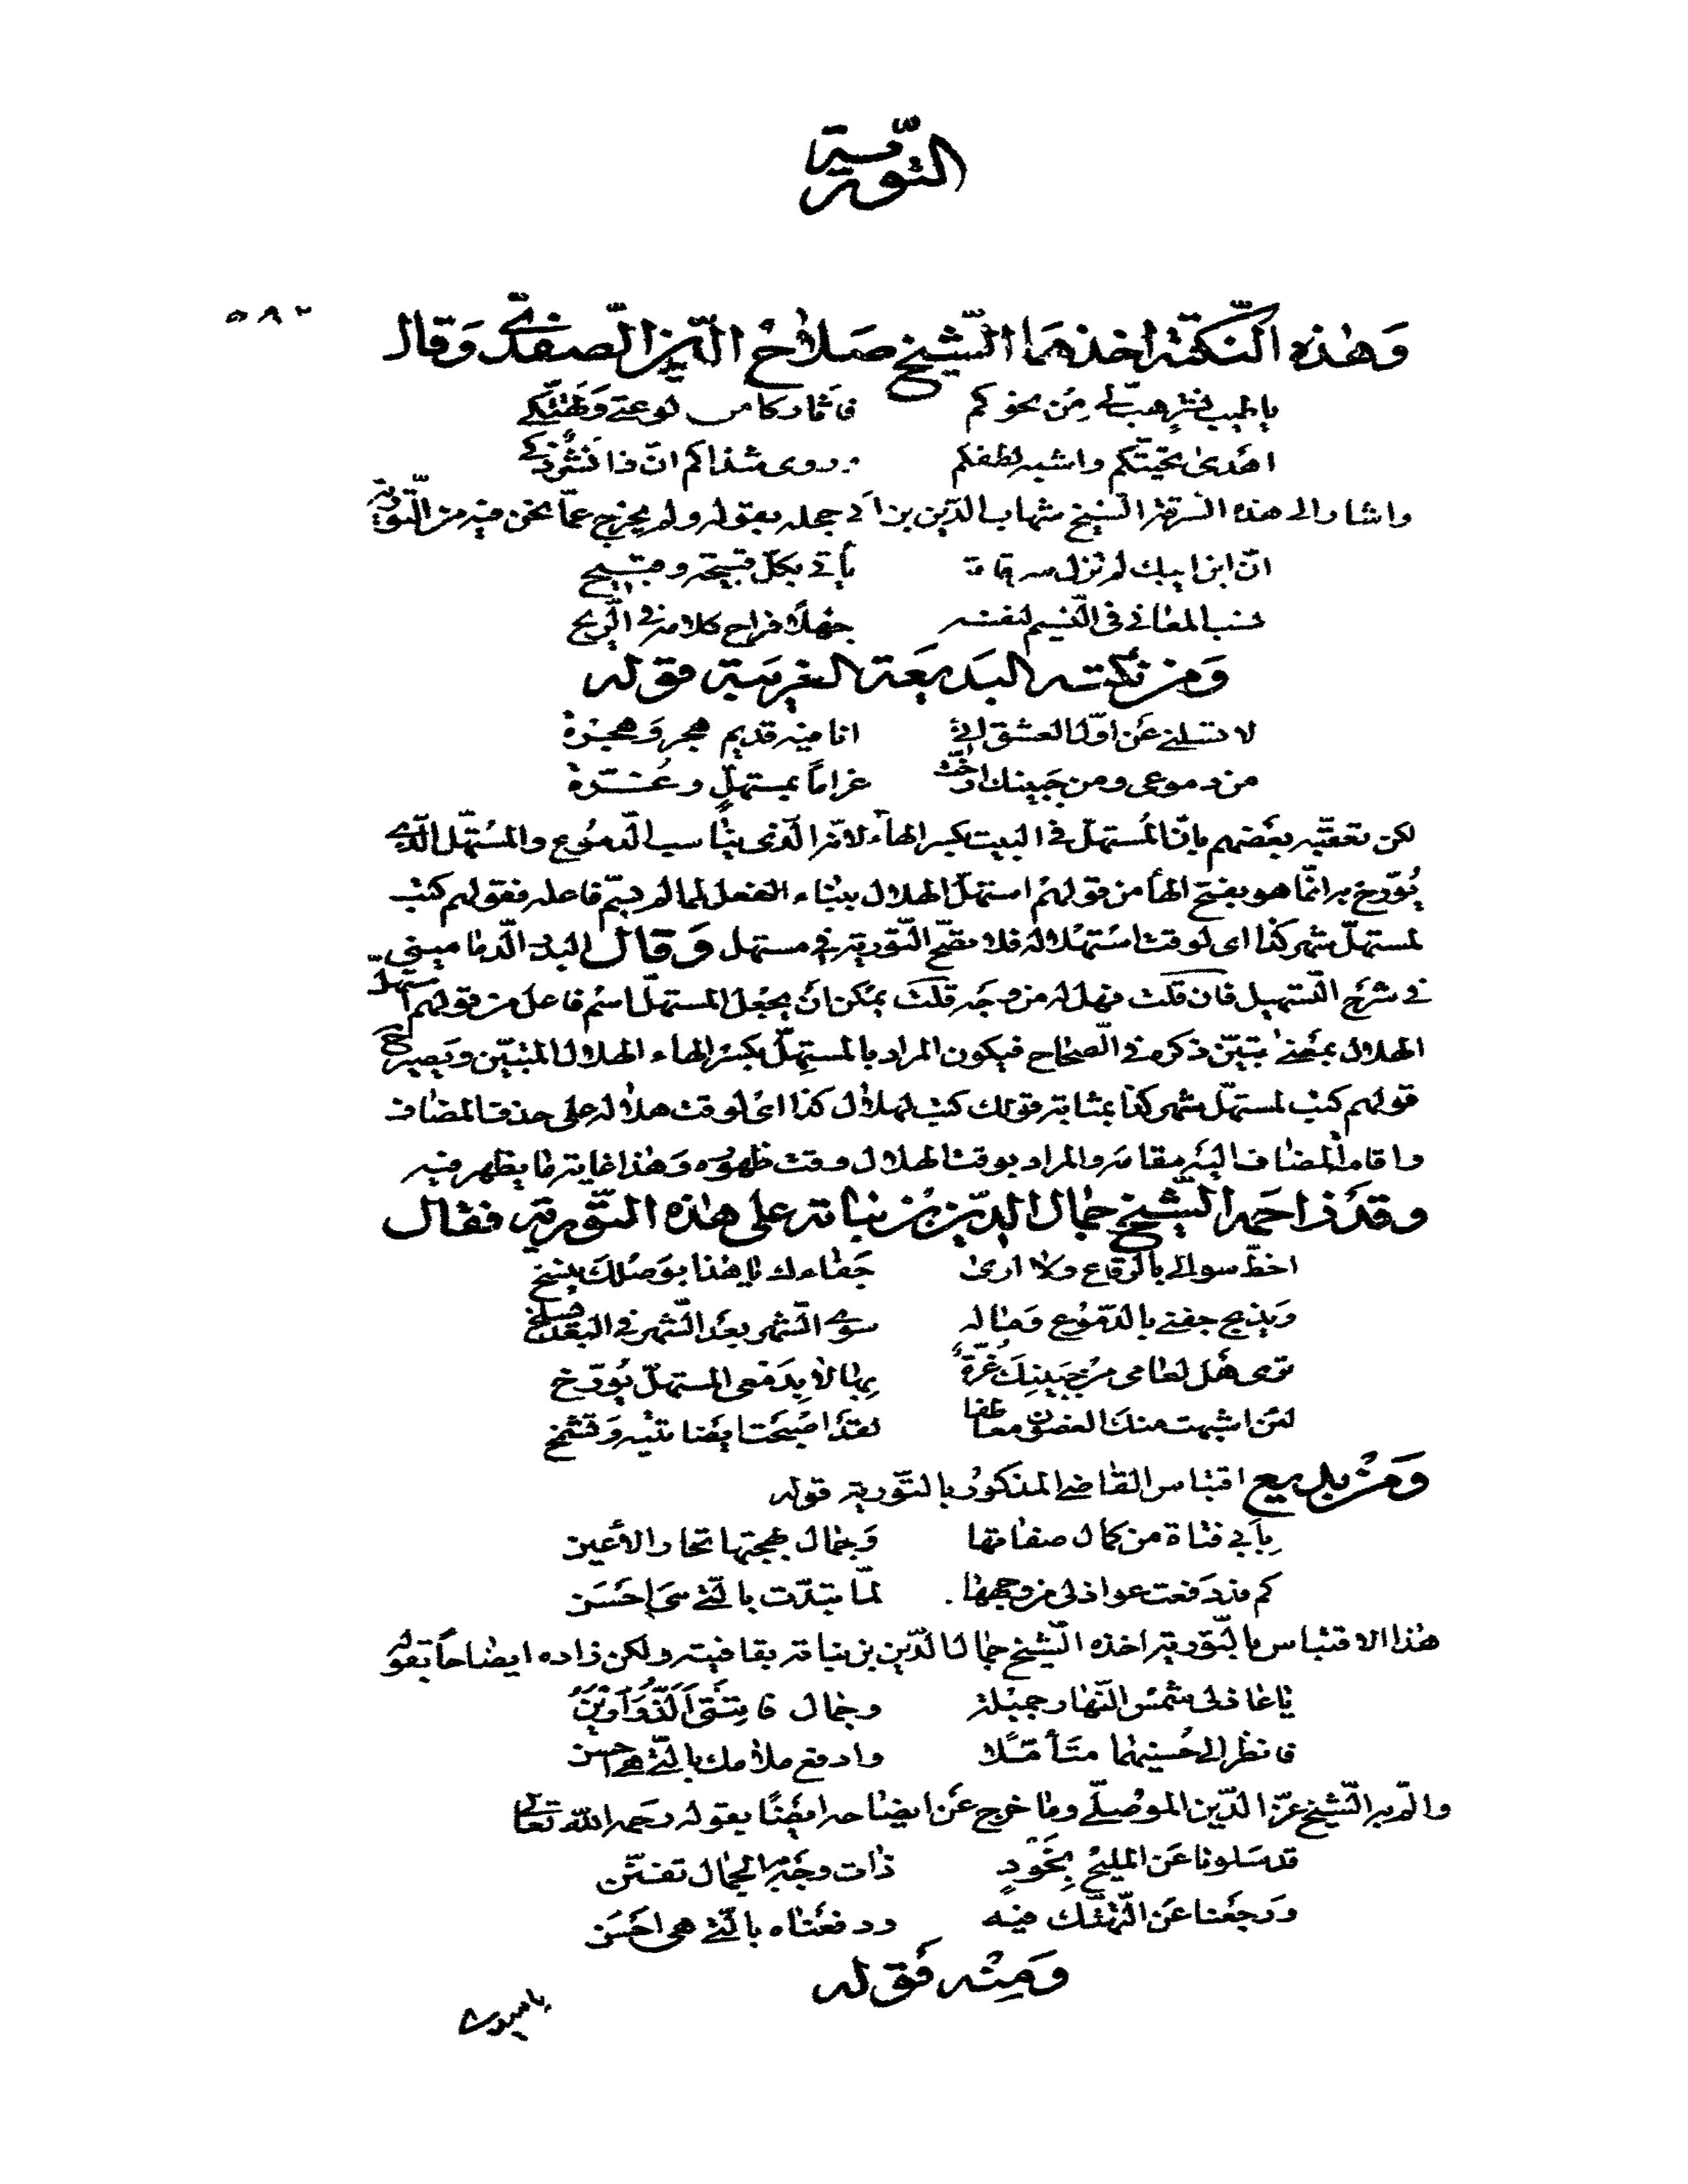 التورية
٥٨٢
وَهٰذه النكتة اخذهَا الشيخ صَلاحُ الدّين الصفدي وَقال
يا طيب نشرٍ هبّ لى مِن نحوكم فاثار كامن لوعتى وَتهتّكى
اهدىٰ تحيّتكم واشبه لطفكم وروى شذاكم انّ ذا نشرٌ ذكى
واشار الى هذه السرقة الشيخ شهاب الدّين بن ابى حجله بقوله ولم يخرج عمّا نحن فيه من التّورية
انّ ابن ايبك لم تزل سرقاته يأتى بكلّ قبيحة وقبيح
نسب المعانى فى النسيم لنفسه جهلًا فراح كلامه فى الريح
وَمن نكته البَديعَة الغريبَة قوله
لا تسلنى عَن اوّل العشق انى انا فيه قديم هجر وَهجرة
من دموعى ومن جَبينك ارّخت غرامًا بمستهلٍّ وغُرّة
لكن تعقّبه بعضهم بانّ المُستهلّ فى البيت بكسر الهاء لانّه الّذى يناسب الدّموُع والمسُتهّل الّذى
يُوّرخ به انّما هو بفتح الهأ من قولهمُ استهلّ الهلال ببناء الفعل لما لم يسّم فاعله فقولهم كتب
لمستهلّ شهر كذا اى لوقت استهلاله فلا تصحّ التّورية فى مستهل وَقال البدر الدّمامينى
فى شرح التسهيل فان قلت فهل له من وجَه قلت يمكن انْ يجعل المستهلّ اسم فاعل من قولهم استهلّ
الهلال بمعنى تبيّن ذكره فى الصّحاح فيكون المراد بالمستهِلّ بكسر الهاء الهلال المتبيّن ويَصير
قولهم كتب لمستهلّ شهر كذا بمثابة قولك كتب لهلال كذا اى لوقت هلاله على حذف المضاف
واقامة المضاف اليه مقامه والمراد بوقت الهلال وقت ظهوُره وَهٰذا غاية ما يظهر فيه
وقد زاحمه الشيخ جمال الدين بن نباته على هٰذه التّورية فقال
اخطّ سوالى بالرقاع ولا ارىٰ جَفاءك يا هٰذا بوَصلكَ ينسخ
وَيذبح جفنى بالدّموُع وَماله سوى الشهر بعد الشّهر فى البعد يسلخ
ترى هَل لعامى من جَبينِكَ غُرّةٌ بها لا بِدَمعى المستهلّ يُوّرخ
لئن اشبهت منك الغصون معاطفا لقد اصبحت ايضا تتيه وَتشمخ
وَمنْ بديع اقتباس القاضى المذكور بالتّورية قوله
بِأبى فتاة من كمال صفاتها وَجمال بهجتها تحار الأعين
كم قد دَفعت عواذلى من وجهها لمّا تبدّت بالّتى هى احسَن
هٰذا الاقتباس بالتّورية اخذه الشّيخ جمال الدّين بن نباتة بقافيته ولكن زاده ايضاحاً بقوله
يا عاذلى شمس النّهار جميلة وجمال فاتنتى الَذُّ وَازيَنُ
فانظر الى حُسنيهما متأمّلا وادفع ملامك بالّتى هى احسن
والمّ به الشّيخ عزّ الدّين الموصلّى وما خرج عَن ايضاحه ايضًا بقوله رحمه الله تعالى
قد سَلونا عَن المليح بخَودٍ ذات وجَه به الجمال تفنّن
وَرجعنا عن التّهتّك فيه ودفعناه بالّتى هى احسَن
وَمِنْه قوله